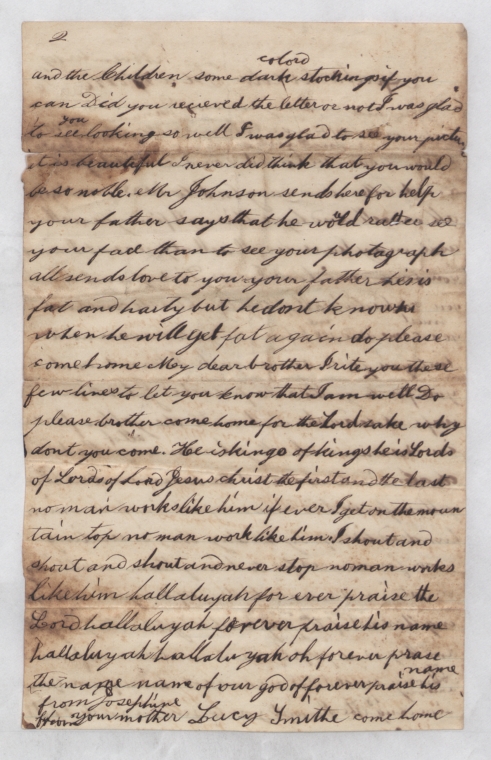 2
colord
and the Children some dark stockings if you
can Did you recieved the letter or not I was glad
to see you looking so well I was glad to see your pictur
it is beautiful I never did think that you would
be so noble. Mr Johnson sends here for help
your father says that he would rather see
your face than to see your photograph
all sends love to you your father he is
fat and harty but he dont know
when he will get fat again do please
come home My dear brother I rite you these
few lines to let you know that I am well Do
please brother come home for the Lord sake why
dont you come. He is kings of kings he is Lords
of Lords of Lord Jesus christ the first and the last
no man works like him if ever I get on the moun
tain top no man work like him. I shout and
shout and shout and never stop no man works
like him hallaluyah for ever praise the
Lord hallaluyah forever praise his name
hallaluyah hallaluyah oh forever prase
name
the name name of our god of forever praise his
from Josephine
from your mother Lucy Smithe come home